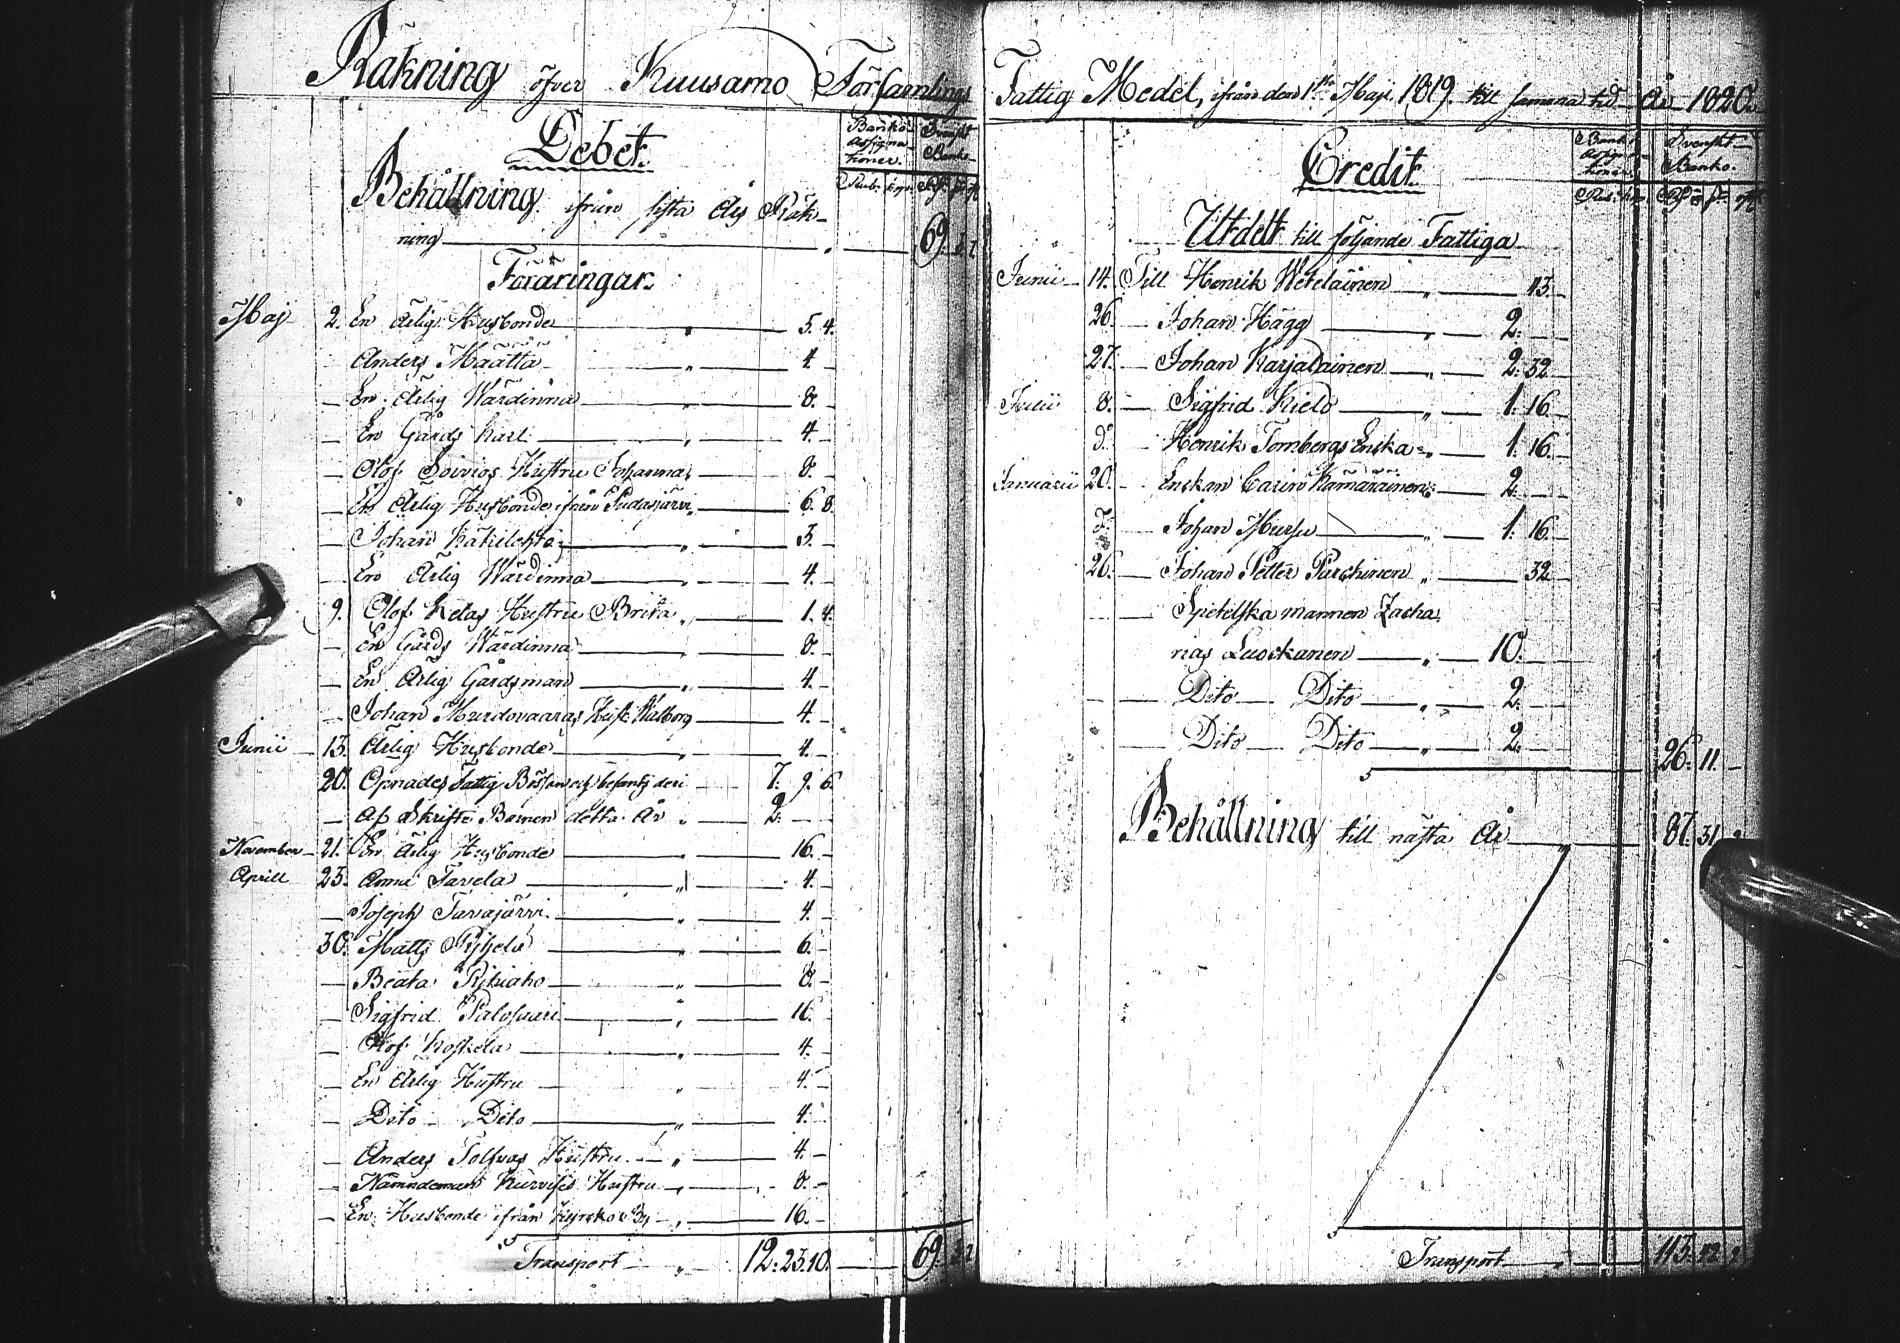 Räkning öfver Kuusamo Församlings
Debet.
Banco Assignationer. Svenskt Banko.
Rub. kop. Rd. s. r
Behållning ifrån sista Års Räk-
ning 69.
Föräringar.
Maj 2. En Ärlig Husbonde 5. 4.
Anders Määttä 4.
En Ärlig Wärdinna 8.
En Gårds Karl 4.
Olof Soivios Hustru Johanna 8.
En Ärlig Husbonde ifrån Pudasjärvi 6. 8.
Johan Kätkilehto 3.
En Ärlig Wärdinna 4.
9. Olof Kelas Hustru Brita 1. 4.
En Gårds Wärdinna 8.
En Ärlig Gårdsman 4.
Johan Murdovaaras Hust. Walborg 4.
Junii 13. Ärlig Husbonde 4.
20. Öpnades Fattig Bössan och befantz deri 7. 9. 6.
Af Skrifte Barnen detta År 2.
November 21. En Ärlig Husbonde 16.
Aprill 23. Anna Tavela 4.
Joseph Tavajärvi 4.
30. Matts Pyhjelä 6.
Beata Rykiaho 8.
Sigfrid Palosaari 16.
Olof Koskela 4.
En Ärlig Hustru 4.
Dito Dito 4.
Anders Tolfvas Hustru 4.
Nämndeman Kurvises Hustru 8.
En Husbonde ifrån Kyrcko By 16.
Transport 12. 23. 10. 69.
Fattig Medel, ifrån den 1ste Maji 1819. till samma tid År 1820.
Credit.
Banko Assignationer. Svenskt Banko.
Rub. kop. Rd. s. r
Utdelt till följande Fattiga
Junii 14. Till Henrik Weteläinen 13.
26. Johan Hägg 2.
27. Johan Karjalainen 2. 32.
Julii 8. Sigfrid Kielo 1. 16.
d. Henrik Tornbergs Enska 1. 16.
Januarii 20. Enskan Carin Kämäräinen 2.
Johan Hursu 1. 16.
26. Johan Petter Parckinen 32.
Spetelska mannen Zacha-
rias Luockanen 10.
Dito Dito 2.
Dito Dito 2.
26. 11.
Behållning till nästa År 87. 31.
Transport 113. 42.